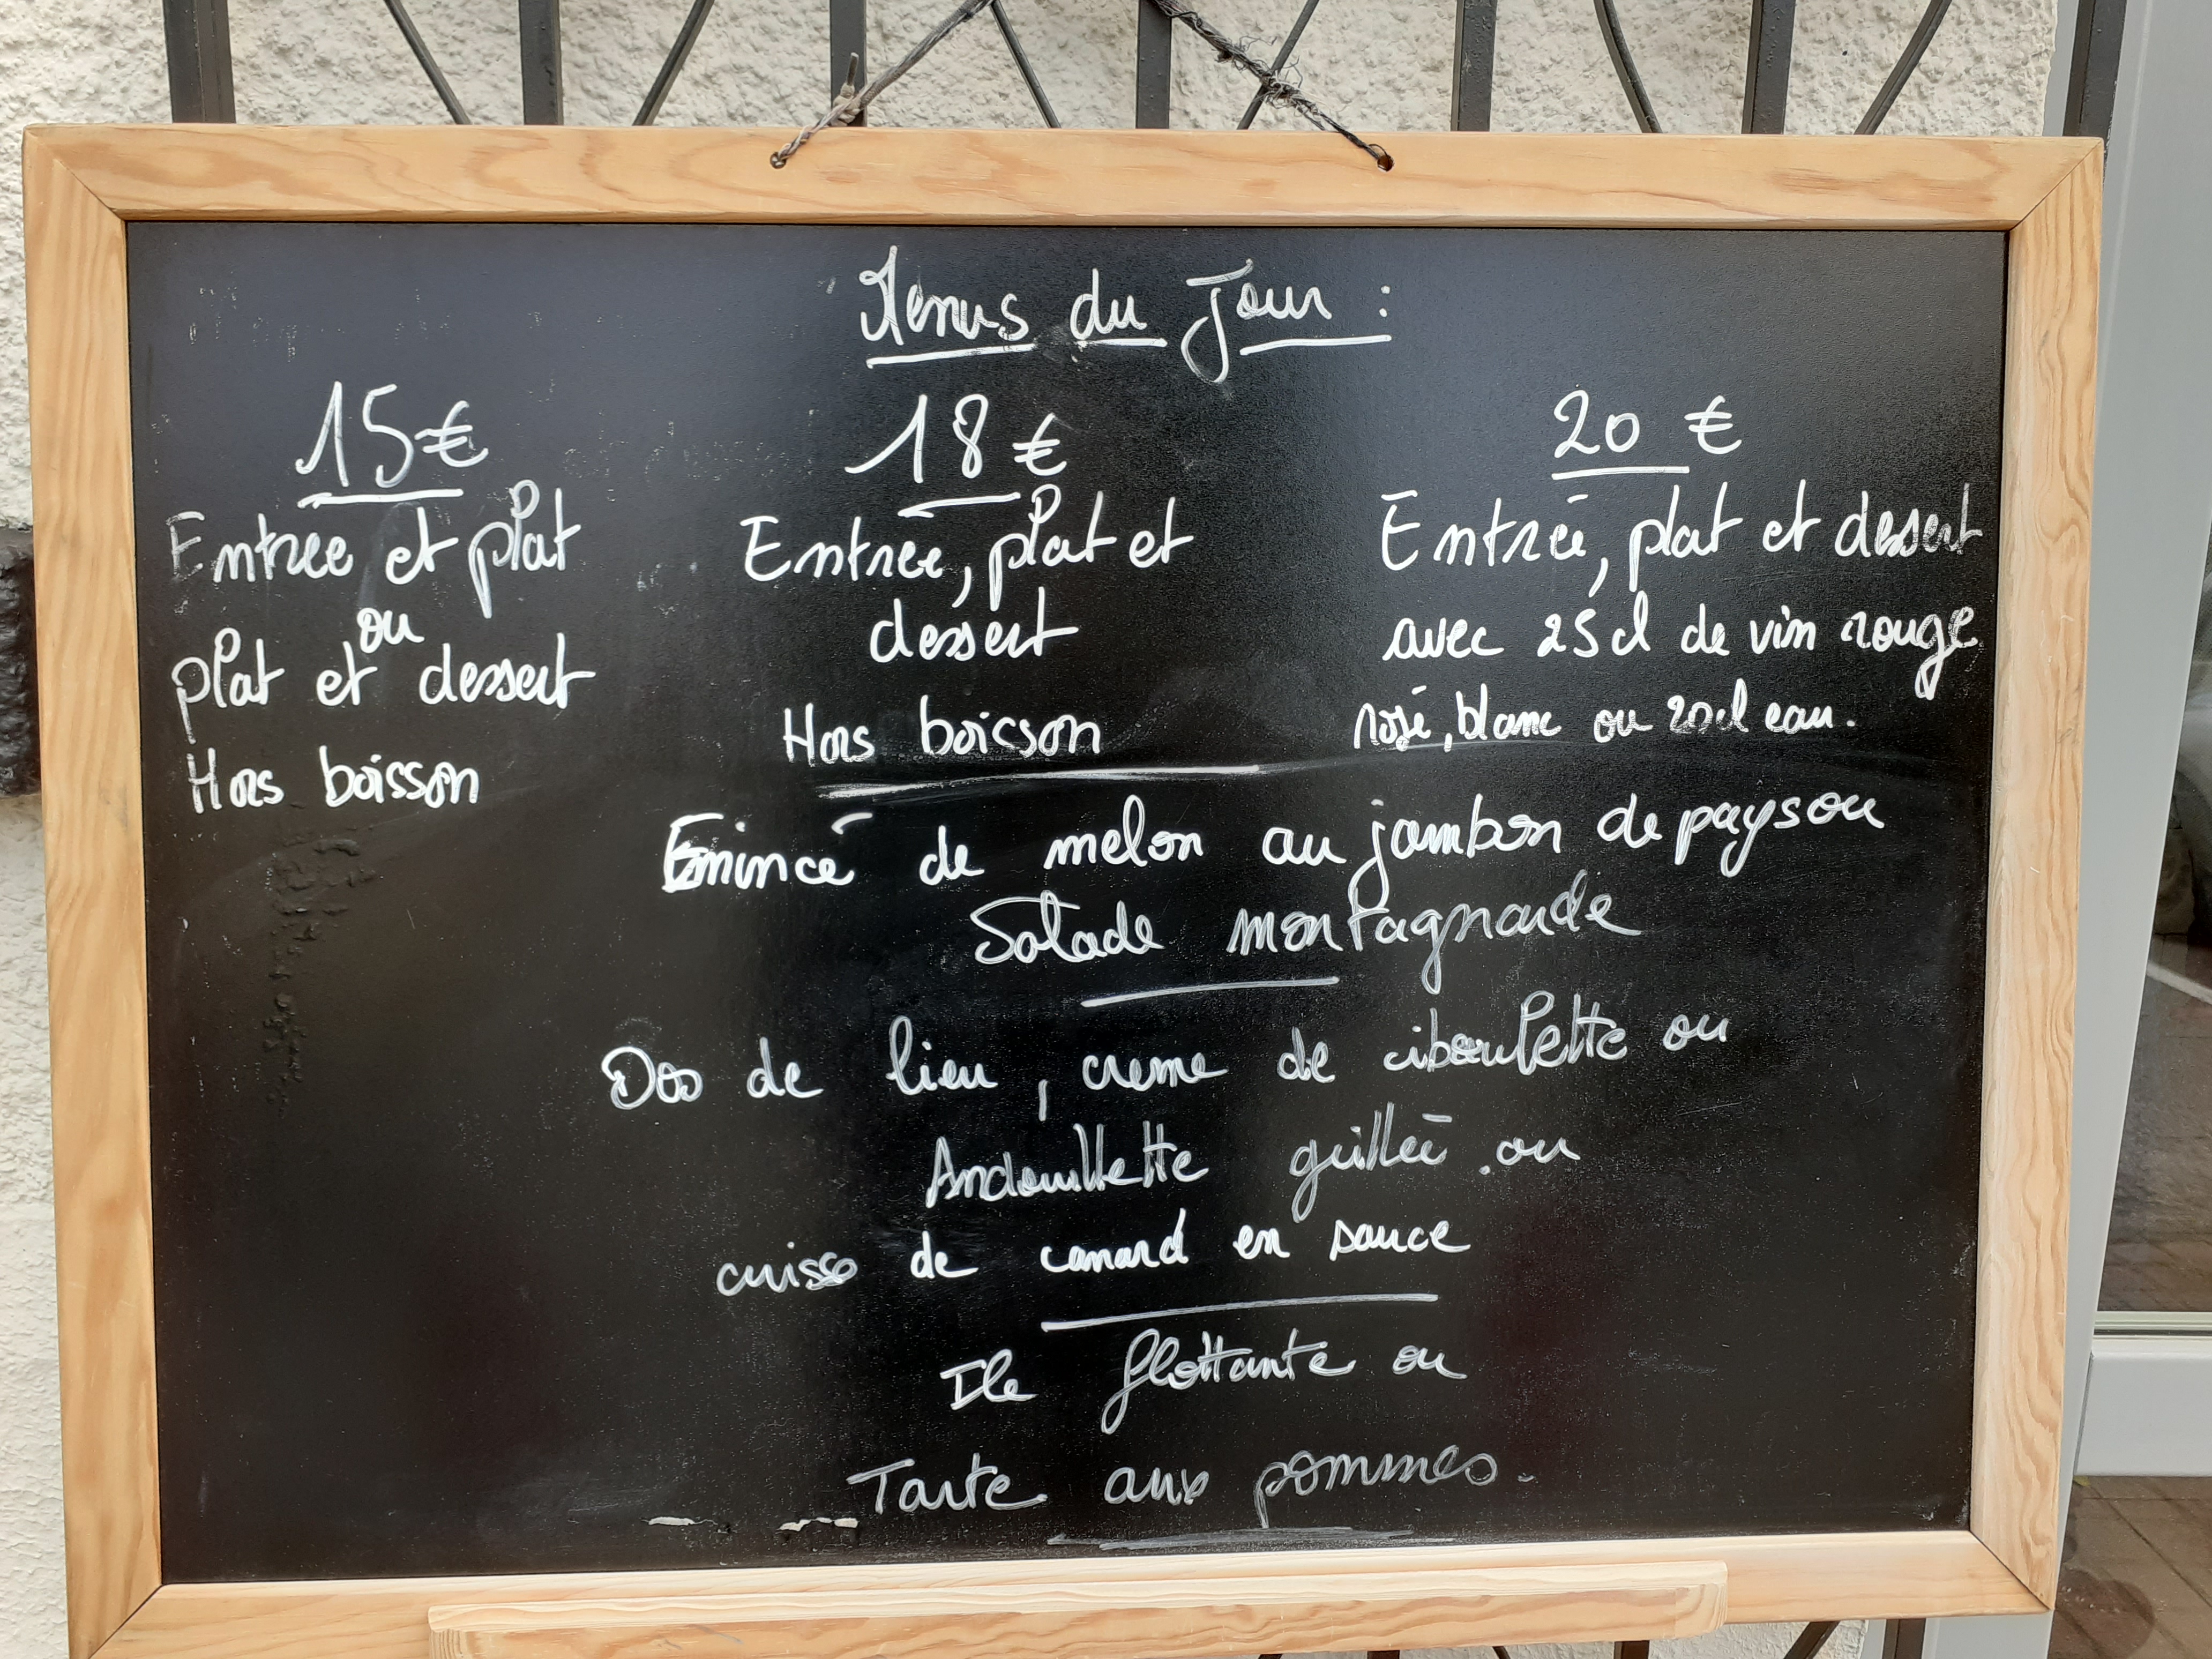 Menus du Jour :
15€
Entrée et plat
ou
plat et dessert
Hors boisson
18€
Entrée, plat et
dessert
Hors boisson
20 €
Entrée, plat et dessert
avec 25cl de vin rouge
rosé, blanc ou 20cl eau.
Emincé de melon au jambon de pays ou
Salade montagnarde
Dos de lieu, creme de ciboulette ou
Andouillette grillée ou
cuisse de canard en sauce
Ile flottante ou
Tarte aux pommes.